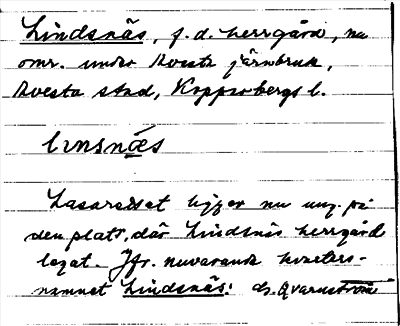 Lindsnäs, f.d. herrgård, nu
omr. under Avesta järnbruk,
Avesta stad, Kopparbergs l.
linsnæs
Lasarettet ligger nu ung. på
den plats, där Lindsnäs herrgård
legat. Jfr. nuvarande kvarters-
namnet Lindsnäs. G. Qvarnström